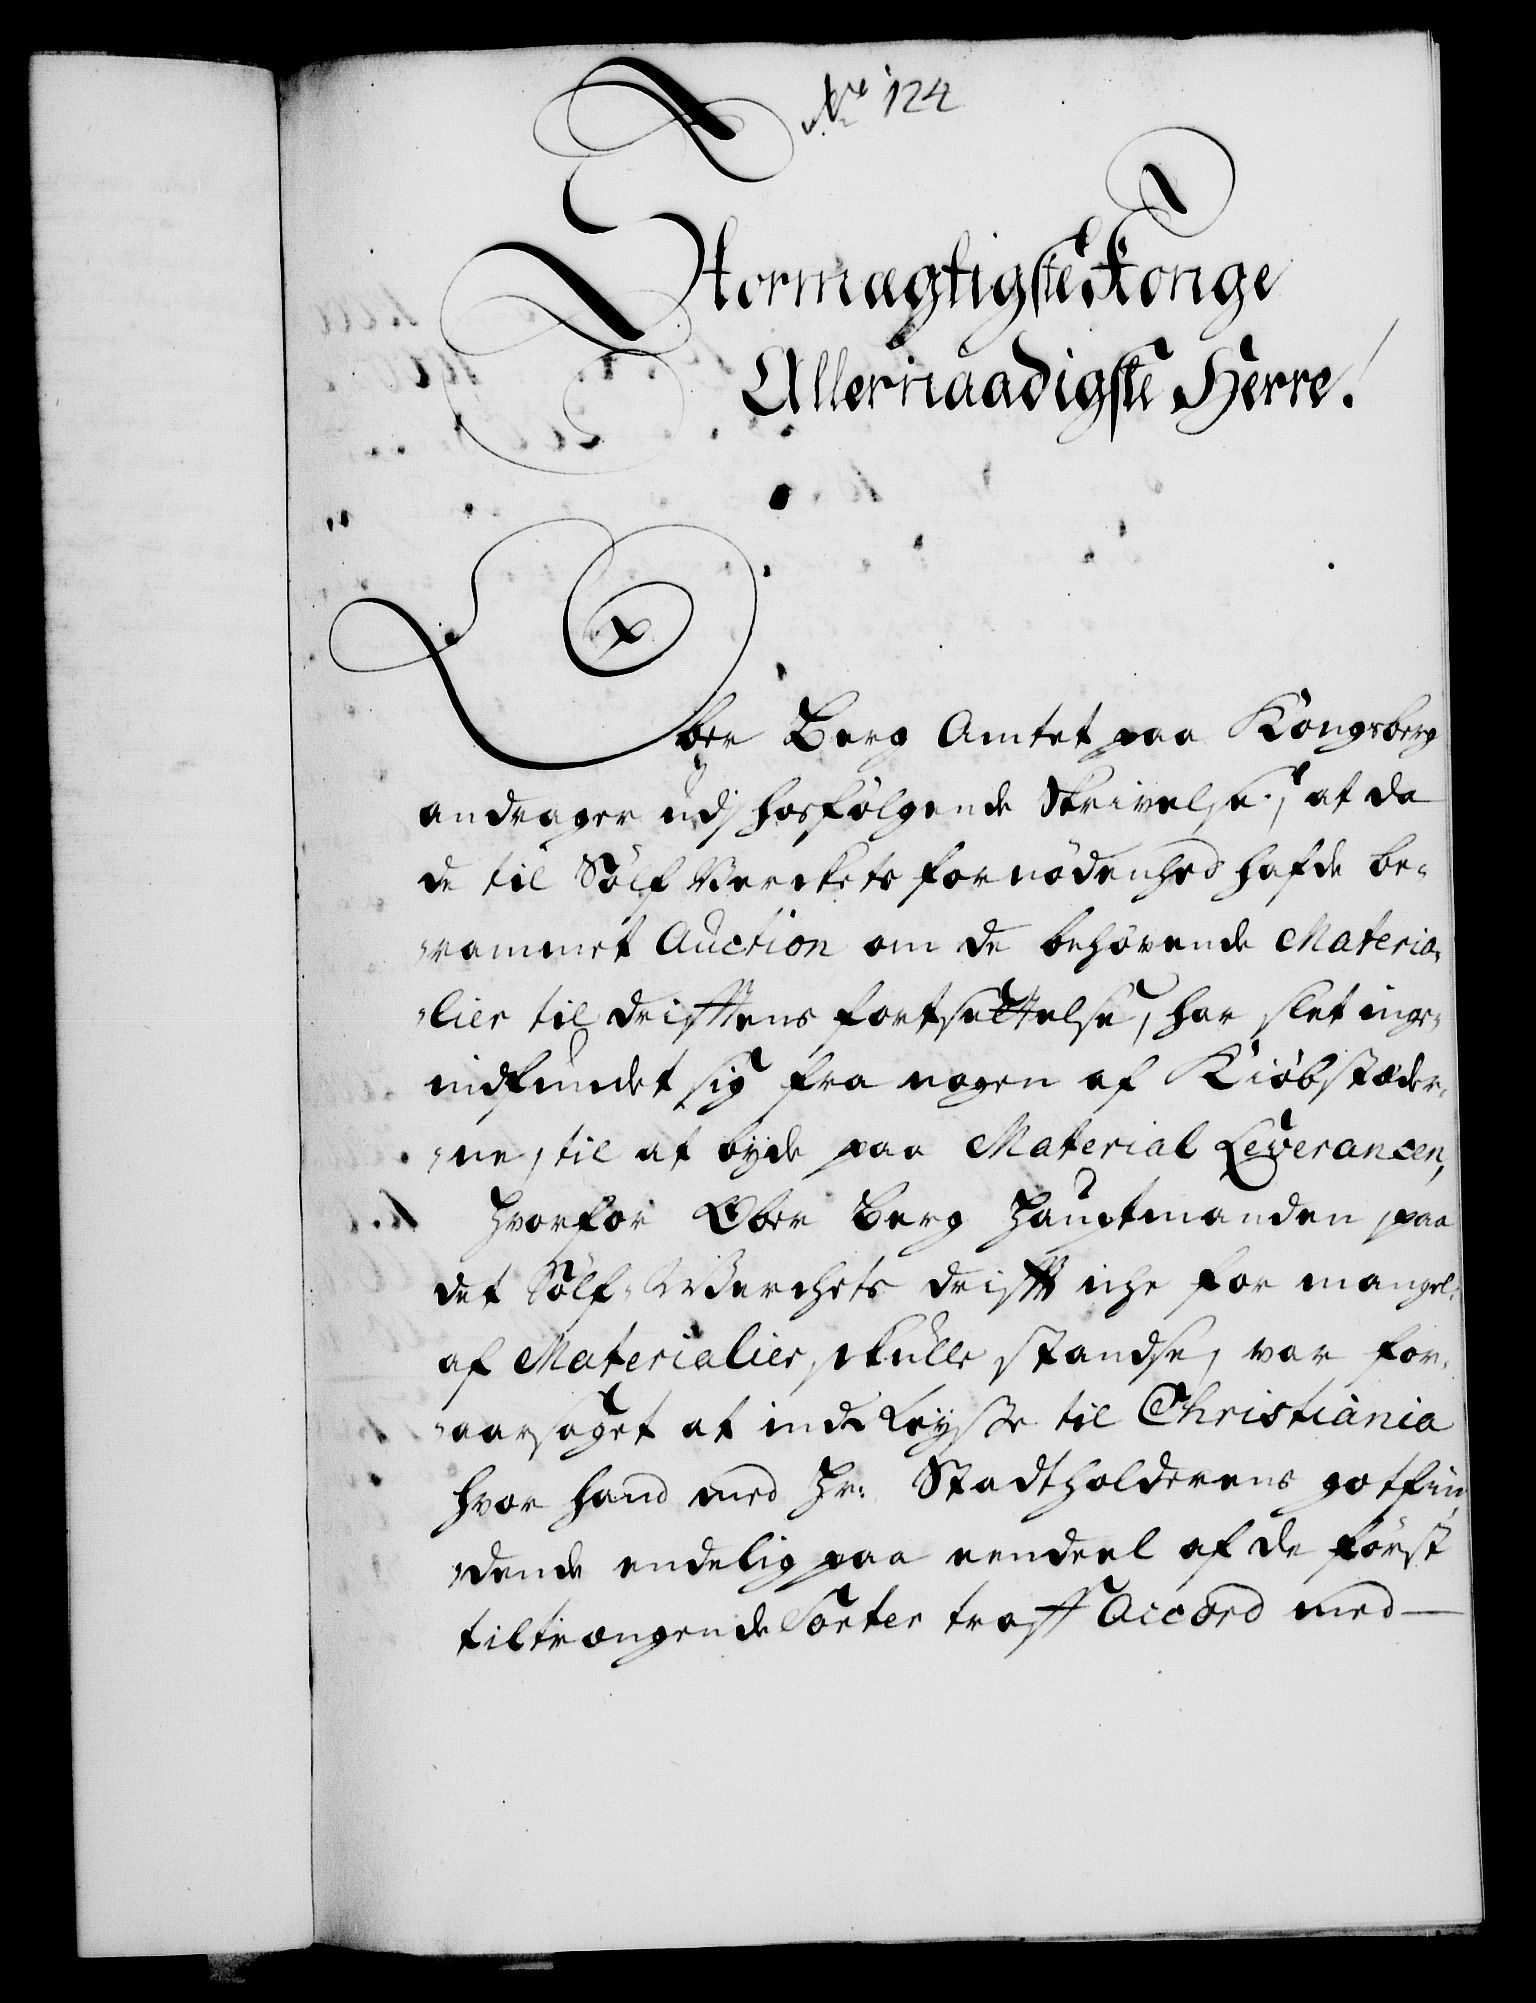 No 124
Stormægtigste Konge
Allernaadigste Herre!
Ober Berg Amtet paa Kongsberg
andrager udj hosfølgende Skrivelse, at da
de til Sølf Werckets fornødenhed hafde be-
rammet Auction om de behøvende Materia-
lier til drifftens fortsættelse, har slet ingen
indfundet sig fra nogen af Kiøbstæder-
ne, til at byde paa Material Leverancen,
Hvorfor Ober Berg Hauptmanden, paa
det Sølf-Werchets drifft iche for mangel
af Materialier skulle standse, var for-
aarsaget at ind Reysse til Christiania
hvor hand med Hr: Stadtholderens gotfin-
dende endelig paa eendeel af de först
tiltrængende Sorter traff Accord med